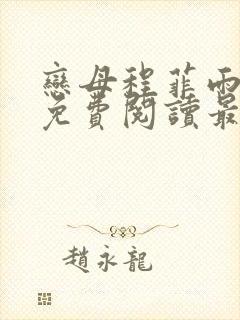 戀母程菲雨
免費閱讀最
趙永龍